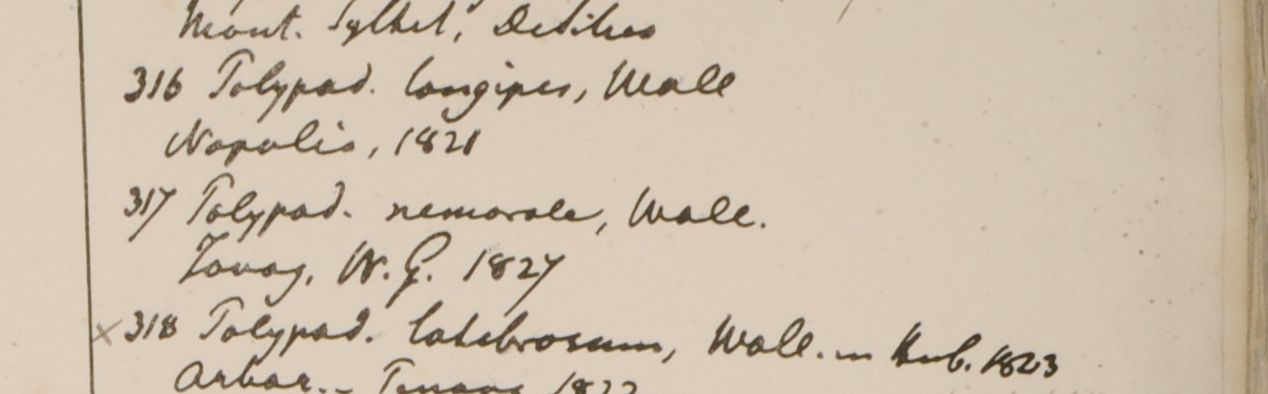 Mont. Sylhet, De Silva
316 Polypod. longipes, Wall
Napalia, 1821
317 Polypod. nemorale, Wall.
Tavoy, W.G. 1827
× 318 Polypod. latebrosum, Wall. in Herb. 1823
Arbor. - Penang 1822